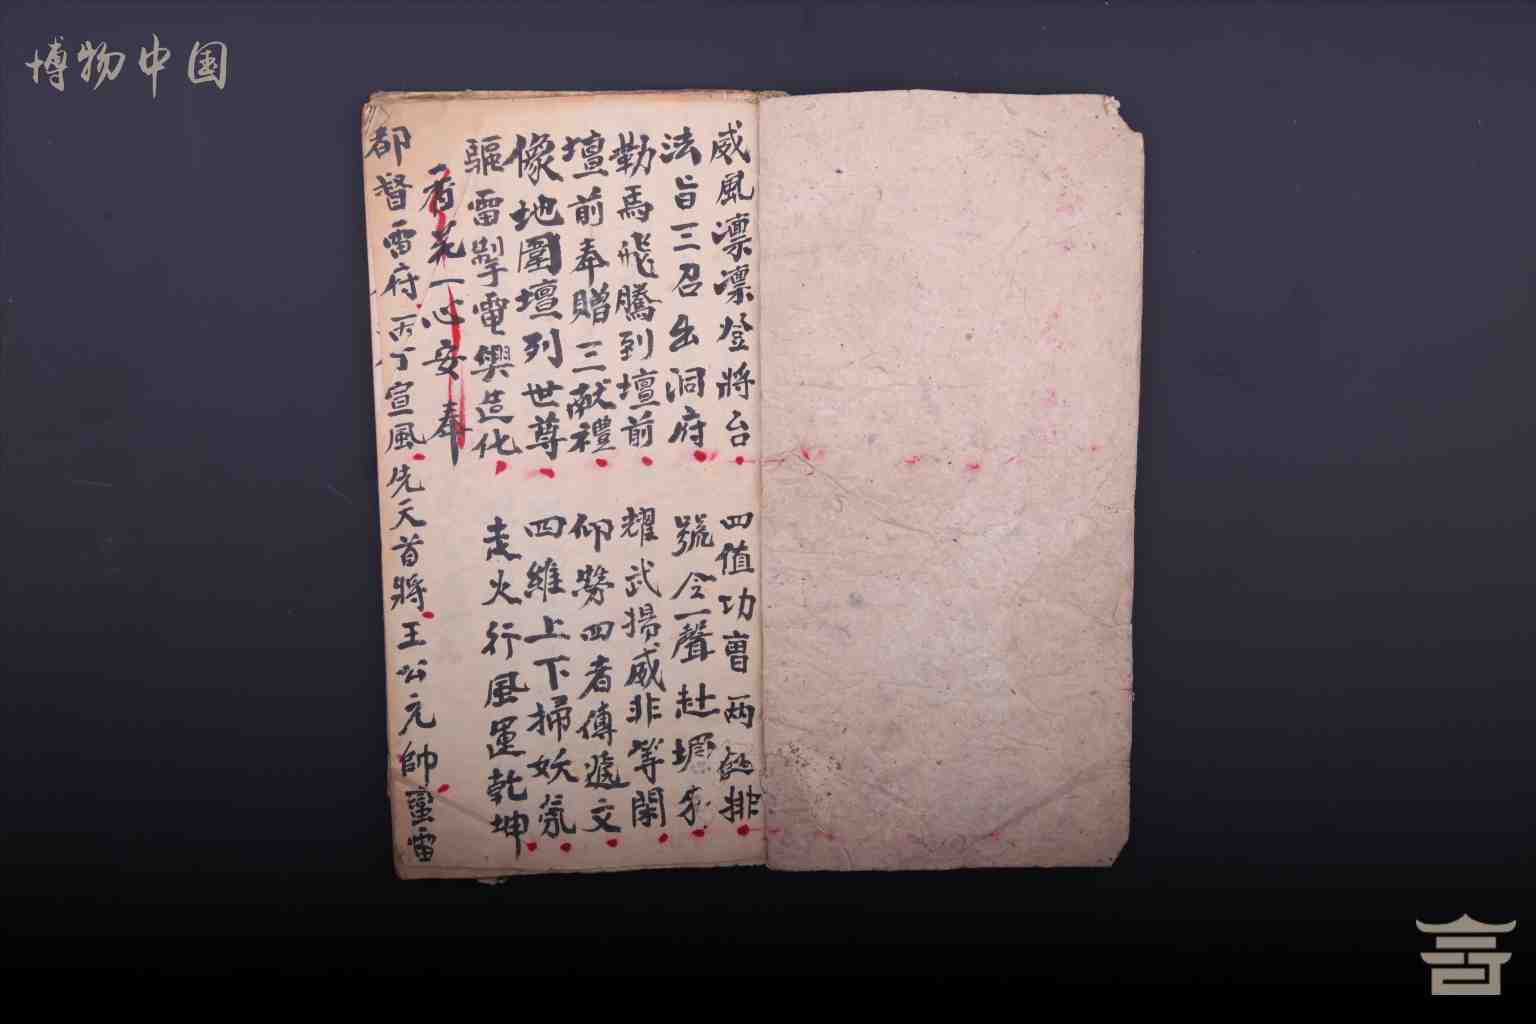 博物中国
威風凛凛登將台 四值功曹两邊排
法旨三召出洞府 號令一聲赴壇來
勒馬飛騰到壇前 耀武揚威非等閑
壇前奉贈三献禮 仰勞四者傳遞文
像地圍壇列世尊 四維上下掃妖氛
驅雷掣電興造化 走火行風運乾坤
一香花一心安奉
都督雷府丙丁宣風先天首將王公元帥蛮雷